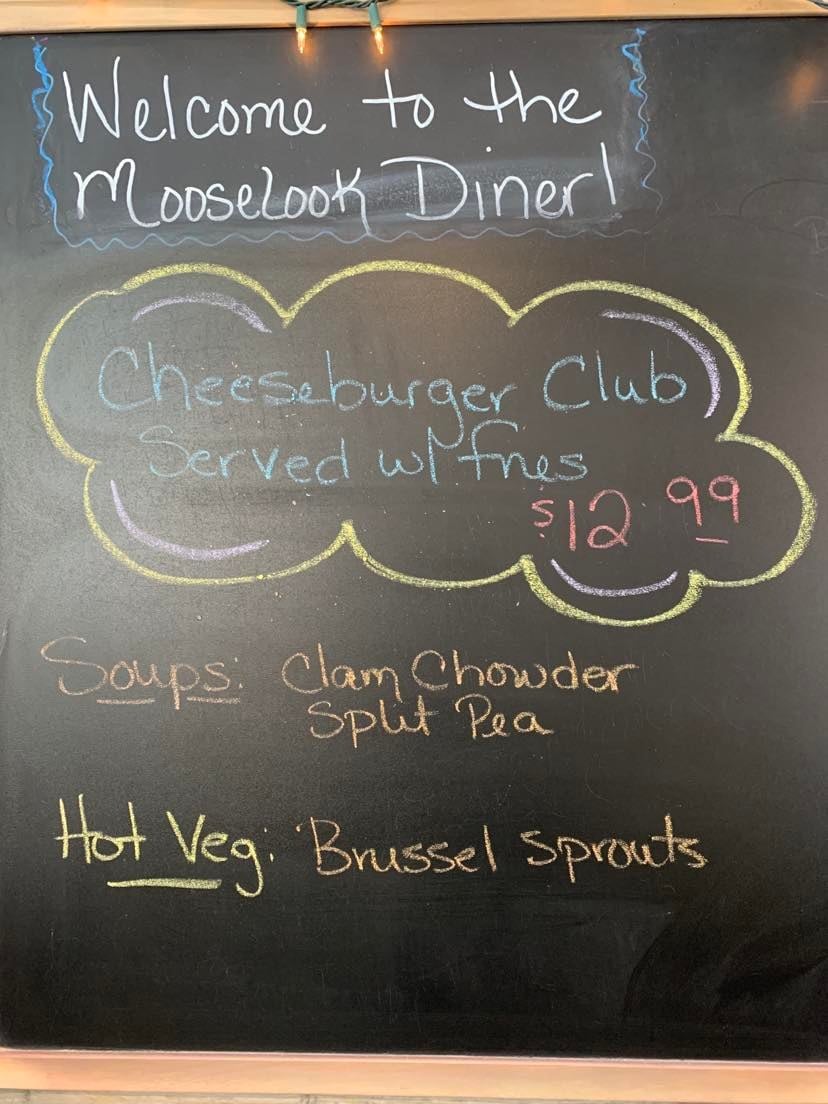 Welcome to the
Mooselook Diner!
Cheeseburger Club
Served w/ fries
$12.99
Soups: Clam Chowder
Split Pea
Hot Veg: Brussel Sprouts